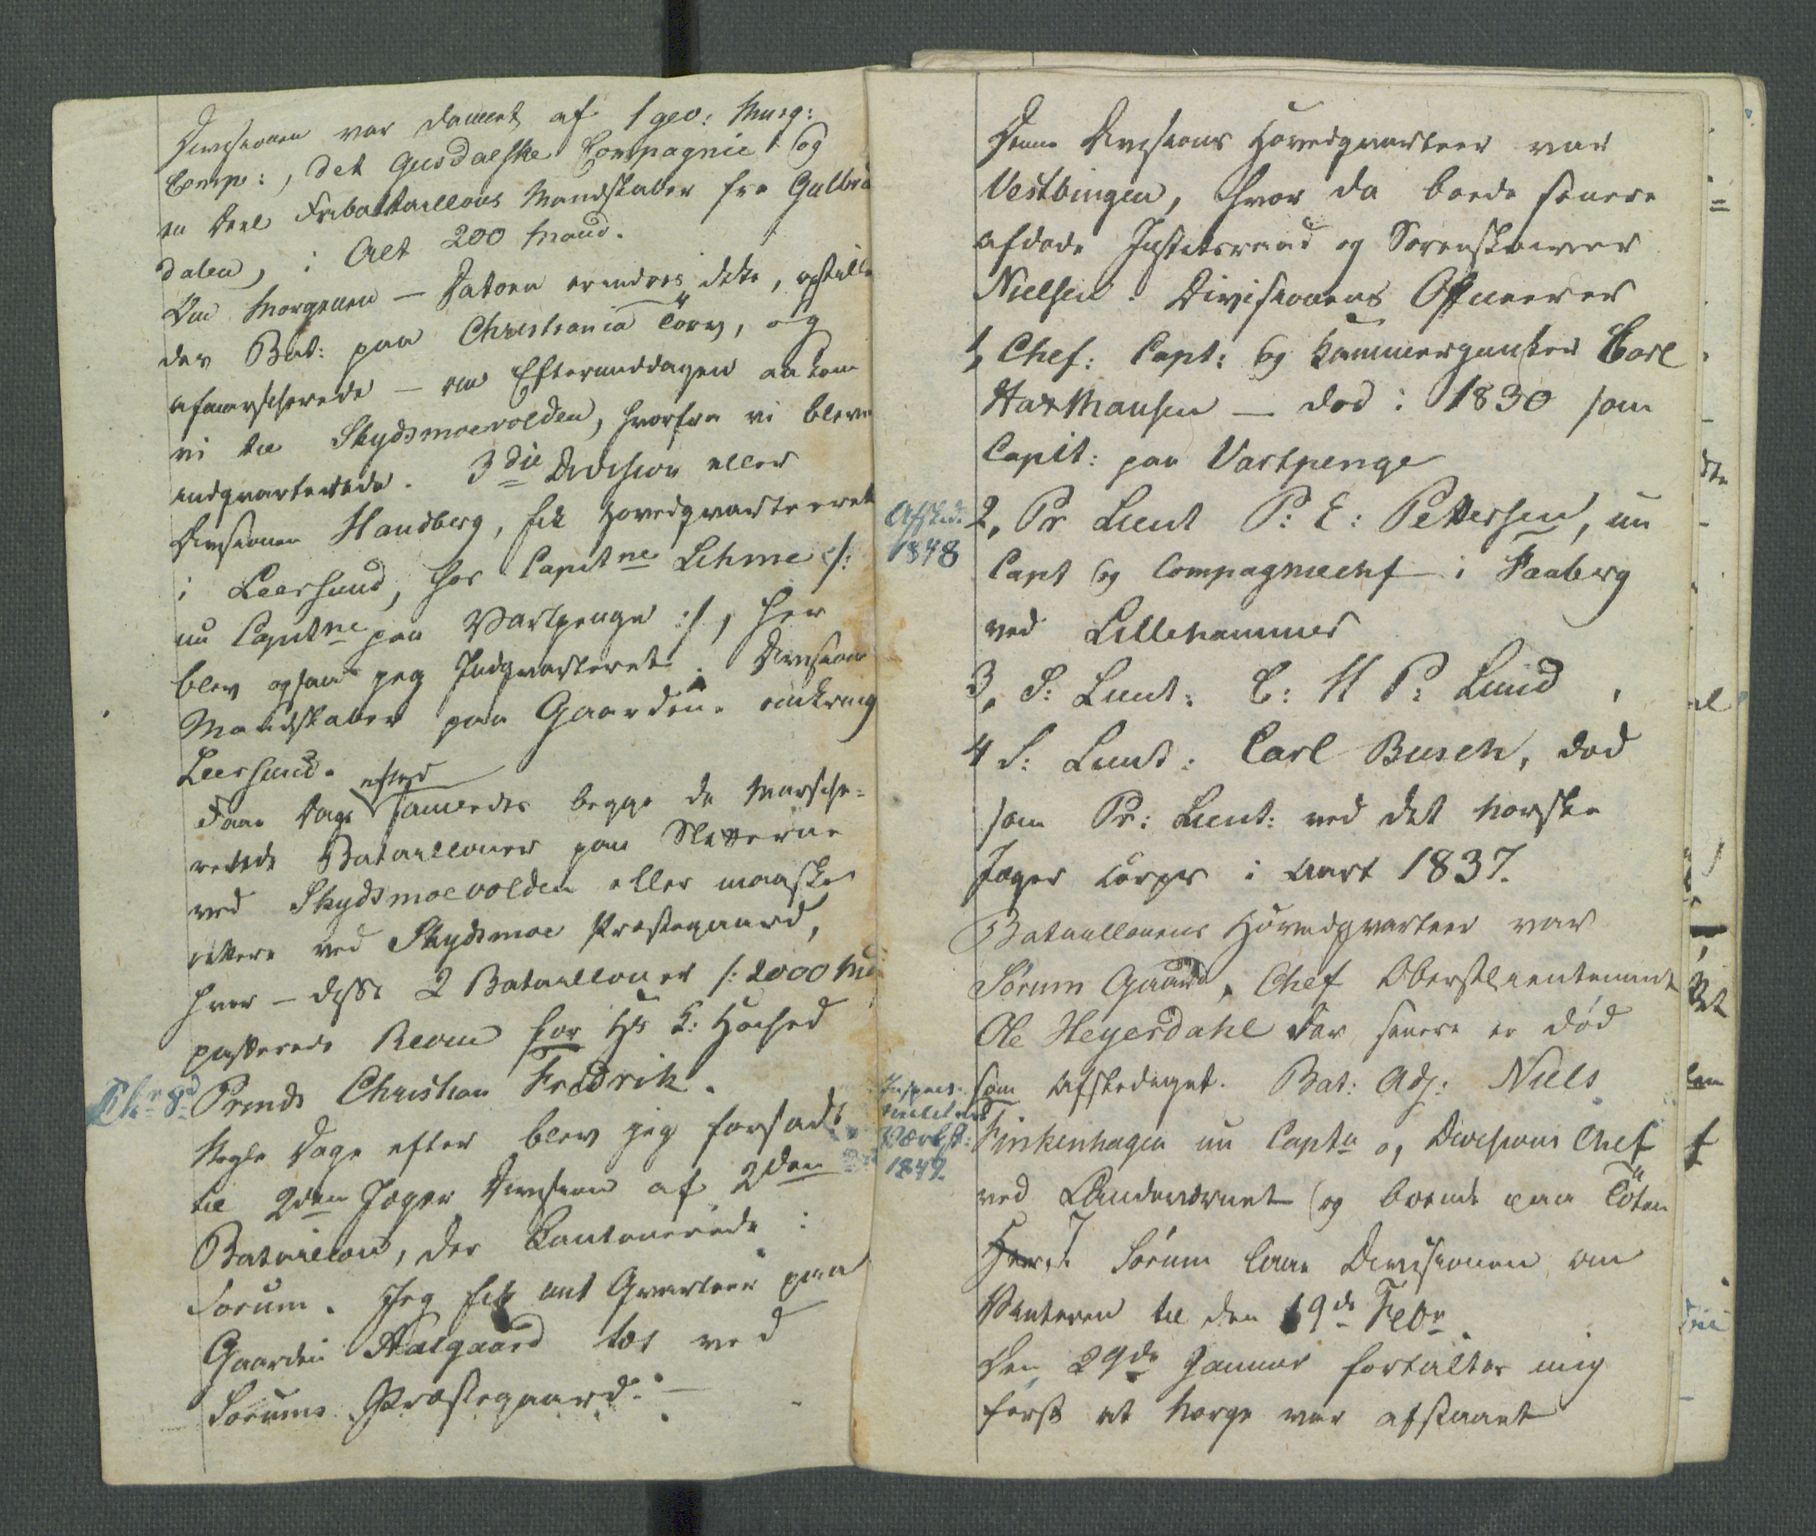 Divisionen var dannet af 1 gev: Musq:
Comp:, det Gusdalske Compagnie og
en Deel Fribataillons Mandskaber fra Gulbrands
dalen, i Alt 200 Mand.
Om Morgenen — Datoen erindres ikke, opstille
des Bat: paa Christiania Torv, og
afmarscherede — om Eftermiddagen ankom
vi til Skydsmoevolden, hvorfra vi bleve
indqvarterede. 3die Division eller
Divisionen Handberg, fik Hovedqvarteeret
i Leersund, hos Capitne Lehme /:
nu Capitne paa Vartpenge :/, her
blev ogsaa jeg Indqvarteret. Divisions
Mandskaber paa Gaardene omkring
Leersund.
Faae Dage efter samledes begge de marsche=
rede Batailloner paa Sletterne
ved Skydsmoevolden eller maaskee
rettere ved Skydsmoe Præstegaard,
hvor — disse 2 Batailloner /: 2000 Md
passerede Revue for Hs K: Høihed
Prinds Christian Fredrik.
Nogle Dage efter blev jeg forsadt
til 2den Jæger Division af 2den
Bataillon, der Cantonerede i
Sørum. Jeg fik mit Qvarteer paa
Gaarden Aalgaard tæt ved
Sørums Præstegaard. —
Denne Divisions Hovedqvarteer var
Vestbingen, hvor da boede senere
afdøde Justitsraad og Sorenskriver
Nielsen. Divisionens Officerer
1, Chef: Capt: og Kammerjunker Carl
Haxthausen — død i 1830 som
Capit: paa Vartpenge
Afsked:
1848
2, Pr Lieut P: E: Pettersen, nu
Capt og Compagniechef i Faaberg
ved Lillehammer
3, S: Lieut: C: H P: Lund,
4 S: Lieut: Carl Busch, død
som Pr: Lieut: ved det norske
Jæger Corps i Aaret 1837.
Bataillonens Hovedqvarteer var
Sørum Gaard, Chef Oberstlieutenant
Ole Heyerdahl der senere er død
som afskediget. Bat: Adj: Niels
Finkenhagen nu Captn og Divisions Chef
1849.
ved Landeværnet og boende paa Toten
I Sørum laae Divisionen om
Vinteren til den 19de Febr.
Den 29de Januar fortaltes mig
først at Norge var afstaaet